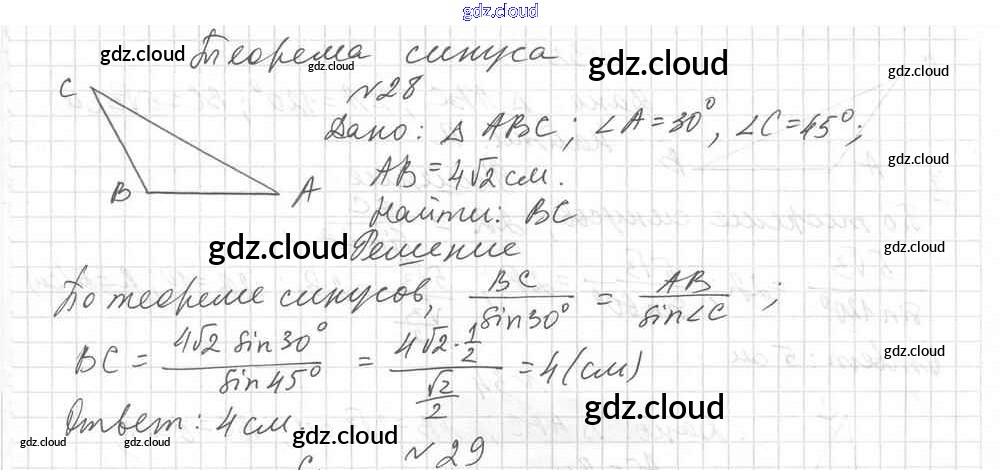 gdz.cloud
gdz.cloud Теорема синуса gdz.cloud
gdz.cloud gdz.cloud gdz.cloud
C №28
Дано: △ ABC; ∠A = 30°, ∠C = 45°;
AB = 4√2 см. gdz.cloud
B A Найти: BC
gdz.cloud Решение gdz.cloud
По теореме синусов, BC/sin30° = AB/sin∠C ;
BC = 4√2 sin30°/sin45° = (4√2 · 1/2)/(√2/2) = 4 (см) gdz.cloud
Ответ: 4 см. gdz.cloud
gdz.cloud gdz.cloud gdz.cloud gdz.cloud
№29